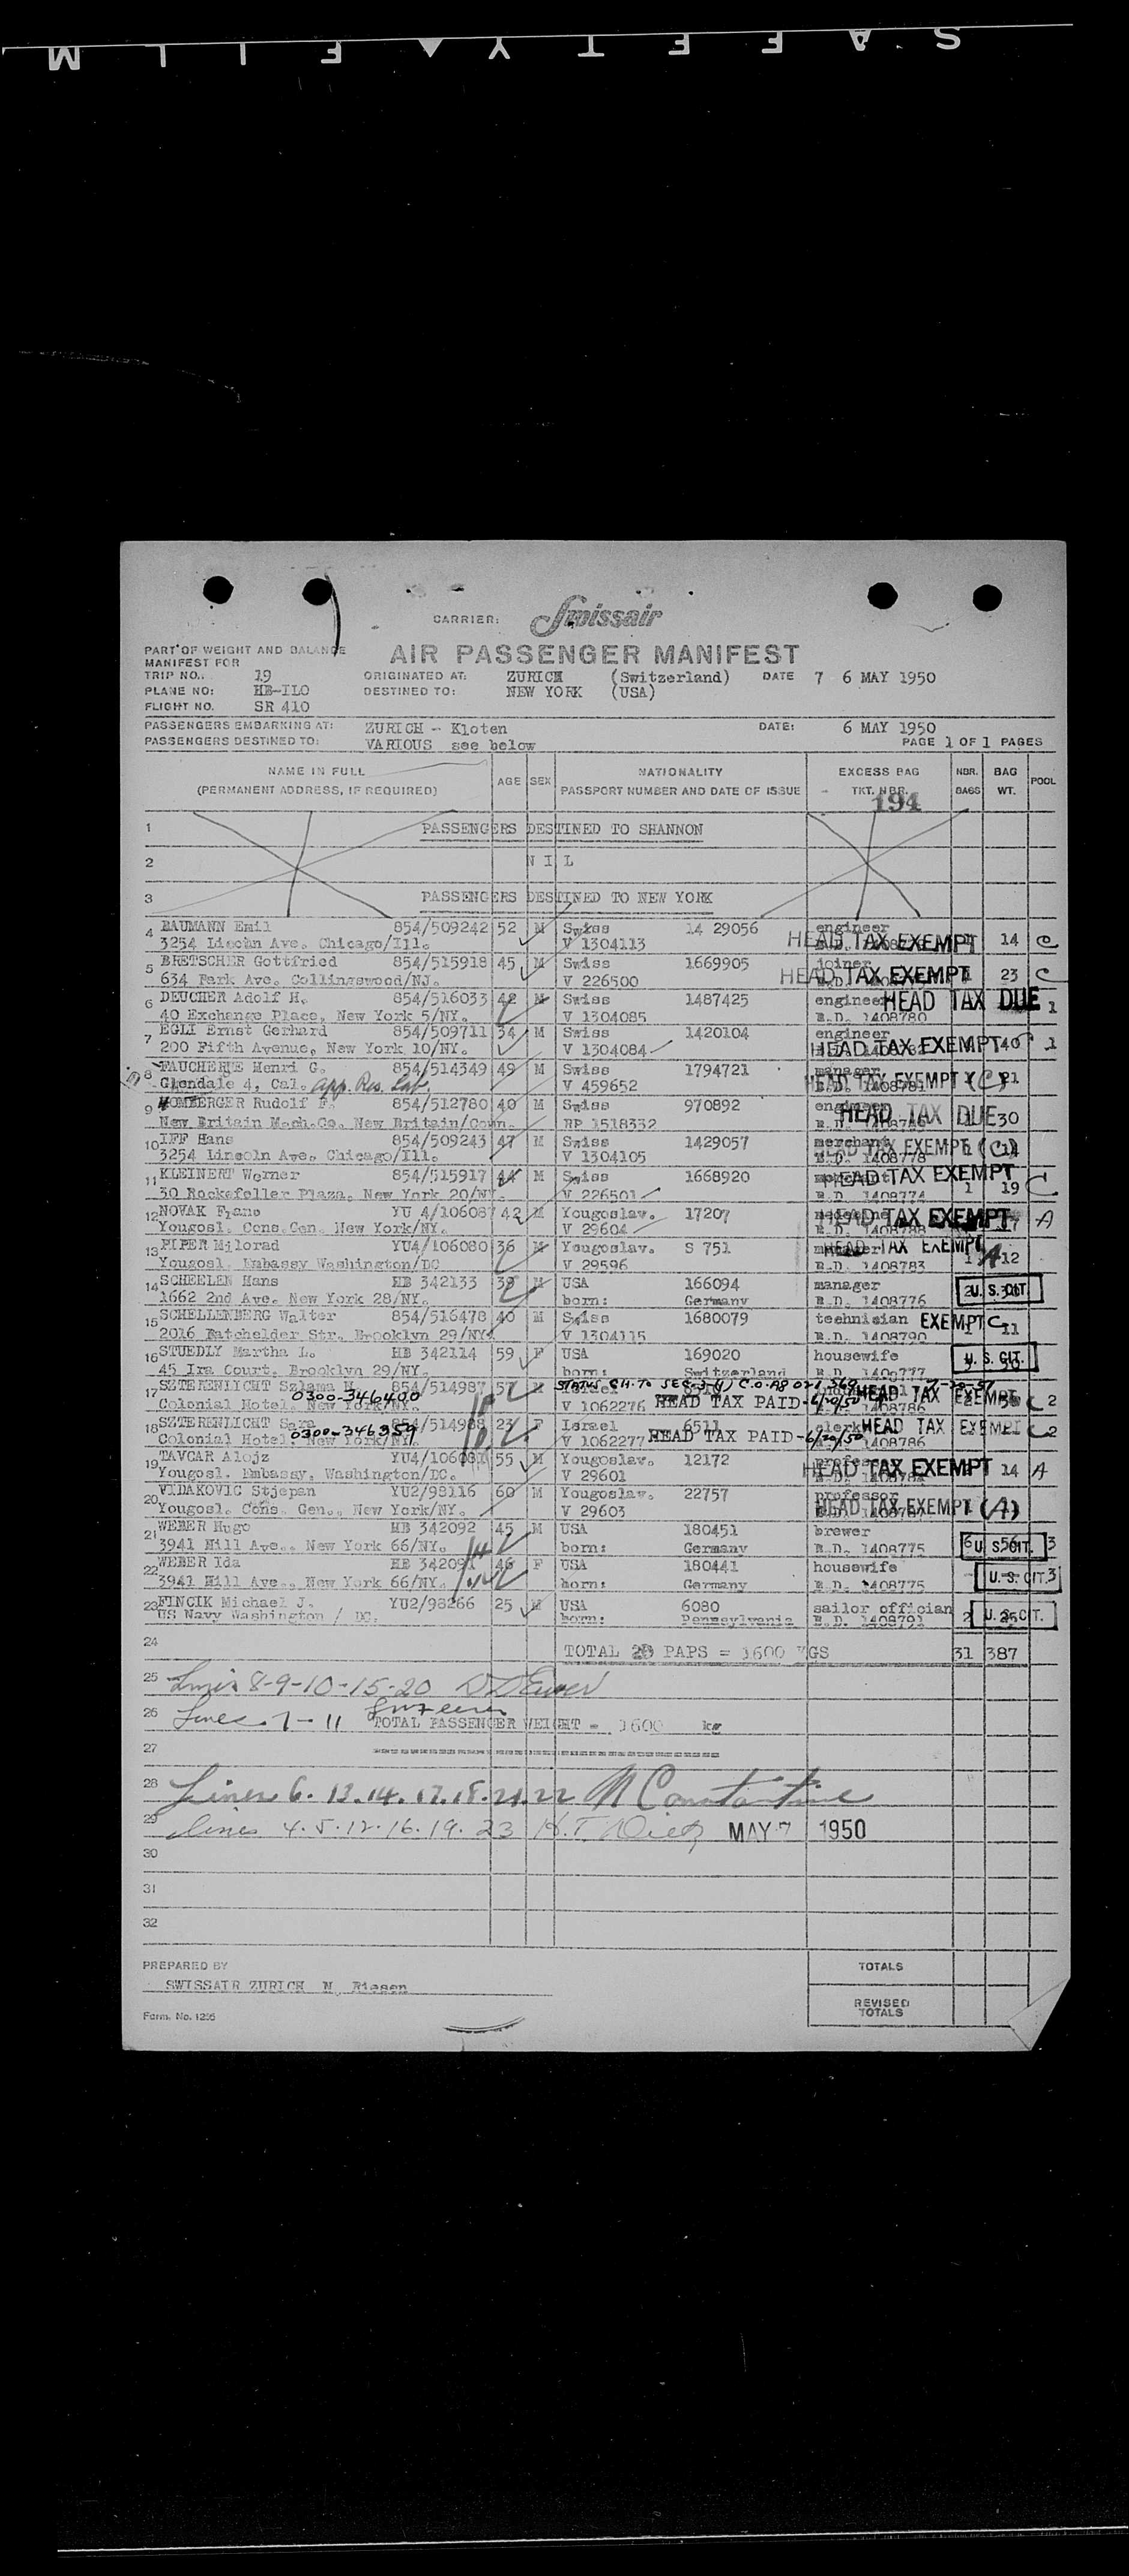 SAFETY ▲ FILM
CARRIER: Swissair
PART OF WEIGHT AND BALANCE
MANIFEST FOR
AIR PASSENGER MANIFEST
TRIP NO.: 19 ORIGINATED AT: ZURICH (Switzerland) DATE 7 6 MAY 1950
PLANE NO: HB-ILO DESTINED TO: NEW YORK (USA)
FLIGHT NO. SR 410
PASSENGERS EMBARKING AT: ZURICH - Kloten DATE: 6 MAY 1950
PASSENGERS DESTINED TO: VARIOUS see below PAGE 1 OF 1 PAGES
NAME IN FULL AGE SEX NATIONALITY EXCESS BAG NBR. BAG POOL
(PERMANENT ADDRESS, IF REQUIRED) PASSPORT NUMBER AND DATE OF ISSUE TKT. NBR. BAGS WT.
194
1 PASSENGERS DESTINED TO SHANNON
2 N I L
3 PASSENGERS DESTINED TO NEW YORK
4 BAUMANN Emil 854/509242 52 M Swiss 14 29056 engineer
3254 Lincoln Ave. Chicago/Ill. V 1304113 HEAD TAX EXEMPT 14 C
5 BRETSCHER Gottfried 854/515918 45 M Swiss 1669905 joiner
634 Park Ave. Collingswood/NJ. V 226500 HEAD TAX EXEMPT 23 C
6 DEUCHER Adolf H. 854/516033 42 M Swiss 1487425 engineer HEAD TAX DUE
40 Exchange Place, New York 5/NY. V 1304085 E.D. 1408780 1
7 EGLI Ernst Gerhard 854/509711 34 M Swiss 1420104 engineer
200 Fifth Avenue, New York 10/NY. V 1304084 HEAD TAX EXEMPT 40 1
8 FAUCHERRE Henri G. 854/514349 49 M Swiss 1794721 manager
Glendale 4, Cal. app. Res. Lab. V 459652 HEAD TAX EXEMPT (C) 21
9 HOMBERGER Rudolf F. 854/512780 40 M Swiss 970892 engineer
New Britain Mach.Co. New Britain/Conn. RP 1518332 HEAD TAX DUE 30
10 IFF Hans 854/509243 47 M Swiss 1429057 merchant
3254 Lincoln Ave. Chicago/Ill. V 1304105 E.D. 1408778 HEAD TAX EXEMPT (C) 14
11 KLEINERT Werner 854/515917 44 M Swiss 1668920 HEAD TAX EXEMPT
30 Rockefeller Plaza, New York 20/NY. V 226501 E.D. 1408774 1 19 C
12 NOVAK Franc YU 4/106087 42 M Yougoslav. 17207 HEAD TAX EXEMPT
Yougosl. Cons.Gen. New York/NY. V 29604 E.D. 1408788 17 A
13 PIPER Milorad YU4/106080 36 M Yougoslav. S 751 HEAD TAX EXEMPT
Yougosl. Embassy Washington/DC V 29596 E.D. 1408783 1 A 12
14 SCHEELEN Hans HB 342133 39 M USA 166094 manager
1662 2nd Ave. New York 28/NY. born: Germany E.D. 1408776 U. S. CIT.
15 SCHELLENBERG Walter 854/516478 40 M Swiss 1680079 technician EXEMPT C
2016 Batchelder Str. Brooklyn 29/NY. V 1304115 E.D. 1408790 1 11
16 STUEDLY Martha L. HB 342114 59 F USA 169020 housewife
45 Ira Court, Brooklyn 29/NY. born: Switzerland E.D. 1408777 U. S. CIT.
17 SZTERENLICHT Szlama 854/514987 57 M STATUS CH. TO SEC. HEAD TAX EXEMPT
0300-346400
Colonial Hotel, New York/NY. V 1062276 HEAD TAX PAID-6/20/50 E.D. 1408786 C 2
18 SZTERENLICHT Sara 854/514988 23 F Israel 6511 clerk HEAD TAX EXEMPT
0300-346359
Colonial Hotel, New York/NY. V 1062277 HEAD TAX PAID-6/20/50 1408786 C 2
19 TAVCAR Alojz YU4/106081 55 M Yougoslav. 12172 professor
Yougosl. Embassy, Washington/DC. V 29601 HEAD TAX EXEMPT 14 A
20 VIDAKOVIC Stjepan YU2/98116 60 M Yougoslav. 22757 professor
Yougosl. Cons. Gen., New York/NY. V 29603 HEAD TAX EXEMPT (A)
21 WEBER Hugo HB 342092 45 M USA 180451 brewer
3941 Hill Ave., New York 66/NY. born: Germany E.D. 1408775 6 U. S. CIT. 3
22 WEBER Ida HB 342091 46 F USA 180441 housewife
3941 Hill Ave., New York 66/NY. born: Germany E.D. 1408775 U. S. CIT. 3
23 FINCIK Michael J. YU2/98266 25 M USA 6080 sailor offician
US Navy Washington / DC. born: Pennsylvania E.D. 1408791 2 U. S. CIT.
24 TOTAL 20 PAPS = 1600 KGS 31 387
25 Lines 8-9-10-15-20
26 Lines 7-11 TOTAL PASSENGER WEIGHT = 1600 kg
27
28 Lines 6. 13. 14. 17. 18. 21. 22 M Constantine
29 Lines 4. 5. 12. 16. 19. 23 H.T. Dietz MAY 7 1950
30
31
32
PREPARED BY TOTALS
SWISSAIR ZURICH N. Riesen
REVISED
TOTALS
Form. No. 1256